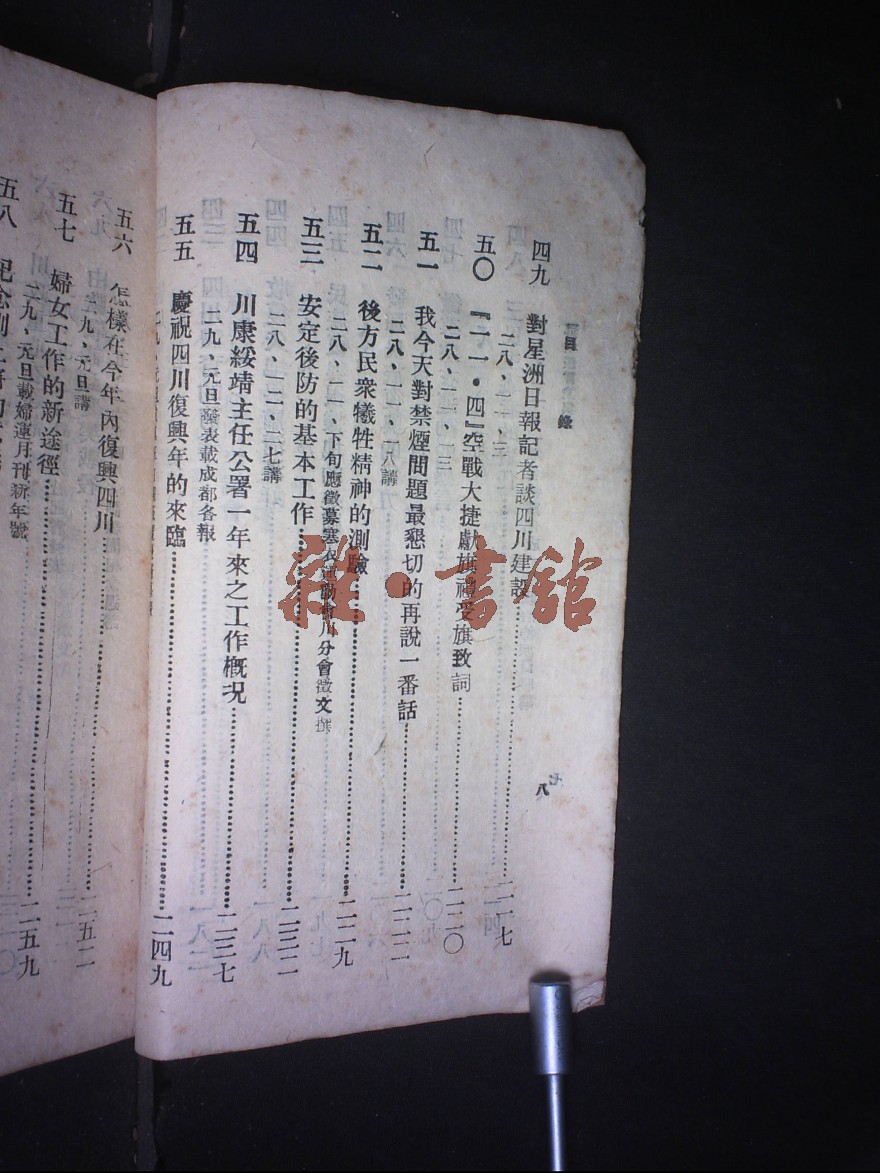 目錄
四九　對星洲日報記者談四川建設……二一七
二八、一一、三
五〇　『一一・四』空戰大捷獻旗禮受旗致詞……二二〇
二八、一一、一三
五一　我今天對禁煙問題最懇切的再說一番話……二二二
二八、一一、一八講
五二　後方民衆犧牲精神的測驗……二二九
二八、一一、下旬應徵募寒衣川分會徵文撰
五三　安定後防的基本工作……二三二
二八、一二、二七講
五四　川康綏靖主任公署一年來之工作概況……二三七
二九、元旦發表載成都各報
五五　慶祝四川復興年的來臨……二四九
八
五六　怎樣在今年內復興四川……二五二
二九、元旦講
五七　婦女工作的新途徑……二五九
二九、元旦載婦運月刊新年號
五八
雜・書館